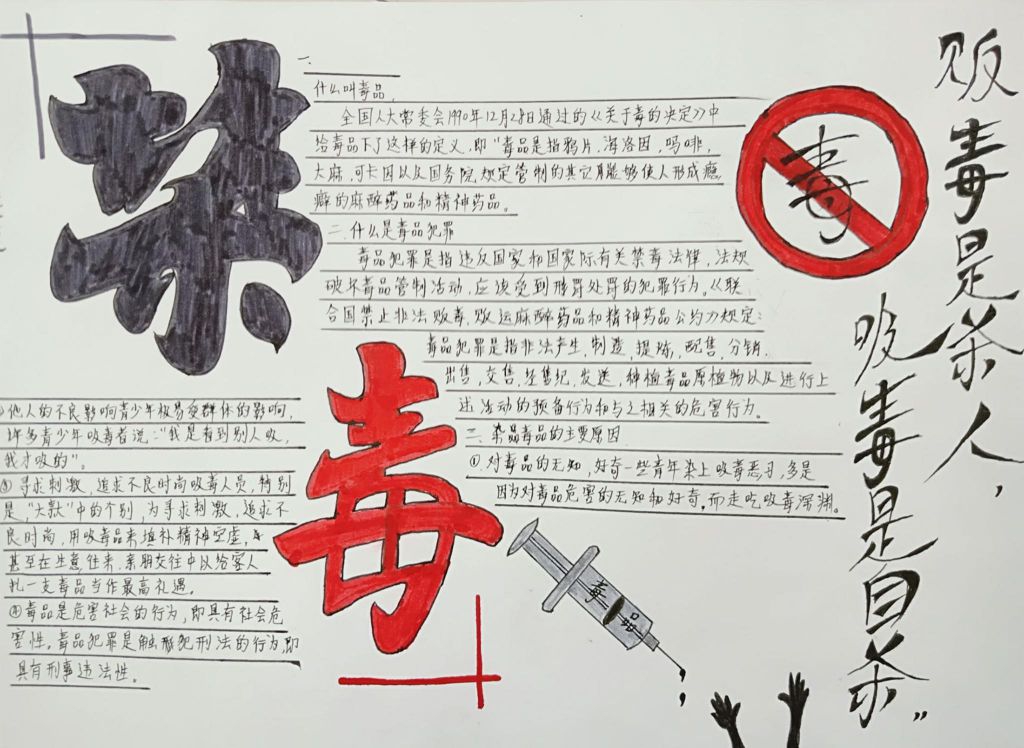 禁
毒
一.
什么叫毒品.
全国人大常委会1990年12月28日通过的《关于毒的决定》中
给毒品下了这样的定义.即"毒品是指鸦片.海洛因,吗啡,
大麻.可卡因以及国务院规定管制的其它能够使人形成瘾
癖的麻醉药品和精神药品。
二.什么是毒品犯罪
毒品犯罪是指违反国家和国家际有关禁毒法律,法规
破坏毒品管制活动,应该受到刑罚处罚的犯罪行为。《联
合国禁止非法贩毒.贩运麻醉药品和精神药品公约》规定:
毒品犯罪是指非法产生,制造,提炼,配售,分销.
出售,交售,经售纪,发送,种植毒品原植物以及进行上
述活动的预备行为和与之相关的危害行为。
二.染品毒品的主要原因
①对毒品的无知,好奇一些青年染上吸毒恶习,多是
因为对毒品危害的无知和好奇.而走吃吸毒深渊。
他人的不良影响青少年极易受群体的影响,
许多青少年吸毒者说:"我是看到别人吸,
我才吸的"。
③寻求刺激,追求不良时尚吸毒人员,特别
是,"大款"中的个别,为寻求刺激,追求不
良时尚,用吸毒品来填补精神空虚,
甚至在生意,往来.亲朋交往中以给客人
扎一支毒品当作最高礼遇。
④毒品是危害社会的行为,即具有社会危
害性。毒品犯罪是触犯刑法的行为,即
具有刑事违法性。
毒
毒品
贩毒是杀人,
吸毒是自杀"